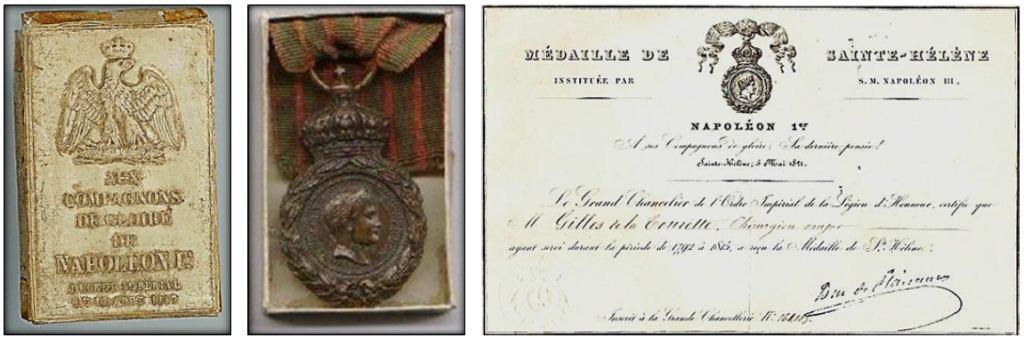 AUX
COMPAGNONS
DE GLOIRE
DE
NAPOLEON Ier
DECRET IMPERIAL
DU 12 AOUT 1857
MÉDAILLE DE SAINTE-HÉLÈNE
INSTITUÉE PAR S. M. NAPOLÉON III.
NAPOLÉON 1er
A ses Compagnons de gloire, Sa dernière pensée!
Sainte-Hélène, 5 Mai 1821.
Le Grand Chancelier de l'Ordre Impérial de la Légion d'Honneur, certifie que
M Gilles de la Tourette, Chirurgien
ayant servi durant la période de 1792 à 1815, a reçu la Médaille de Ste Hélène.
Duc de Plaisance
Inscrit à la Grande Chancellerie No